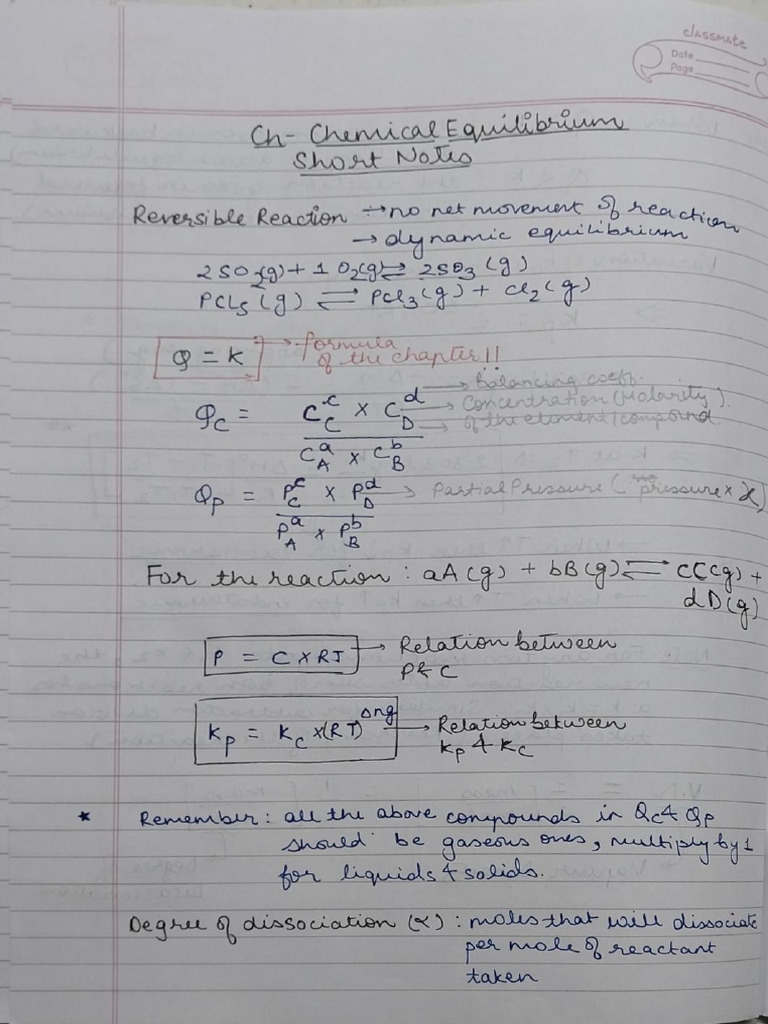 classmate
Date
Page
Ch- Chemical Equilibrium
Short Notes
Reversible Reaction → no net movement of reaction
→ dynamic equilibrium
2SO₂(g) + 1 O₂(g) ⇌ 2SO₃ (g)
PCl₅ (g) ⇌ PCl₃(g) + Cl₂(g)
Q = K → formula
of the chapter!!
Q_C = C_C^c × C_D^d / C_A^a × C_B^b → Balancing coeff.
→ Concentration (Molarity)
→ of the element/compound
Q_P = P_C^c × P_D^d / P_A^a × P_B^b → Partial Pressure ( pressure × x)
For the reaction : aA(g) + bB(g) ⇌ cC(g) +
dD(g)
P = C × RT → Relation between
P & C
K_P = K_C × (RT)^Δng → Relation between
K_P & K_C
* Remember : all the above compounds in Q_C & Q_P
should be gaseous ones, multiply by 1
for liquids & solids.
Degree of dissociation (α) : moles that will dissociate
per mole of reactant
taken